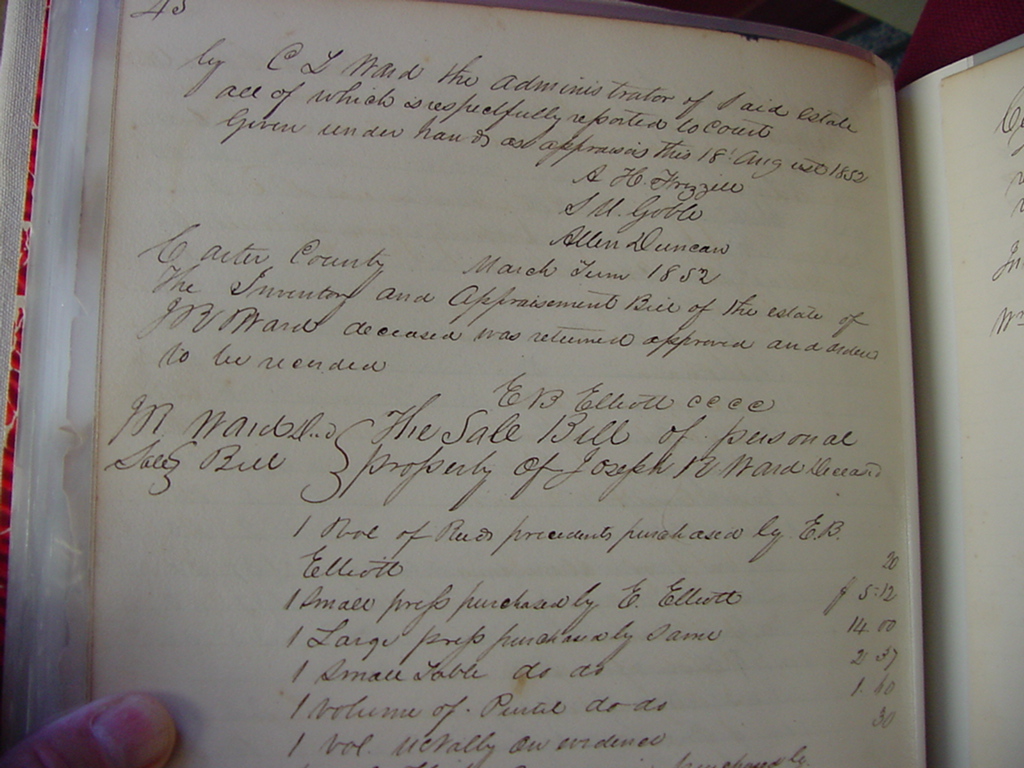 43
by C L Ward the administrator of Said estate
all of which is respectfully reported to court
Given under hands as appraisers this 18th August 1852
A H. Frizzell
S M. Goble
Allen Duncan
Carter County March Term 1852
The Inventory and Appraisement Bill of the estate of
J R Ward deceased was returned approved and orderd
to be recorded
E B Elliott cccc
J R Ward Decd The Sale Bill of personal
Sale Bill property of Joseph R Ward Deceasd
1 vol of precedents purchased by E.B.
Elliott 20
1 Small press purchased by E. Elliott $ 5:12
1 Large press purchased by Same 14 00
1 Small Table do do 2 37
1 volume of do do 1.60
1 vol. on evidence 30
purchased by